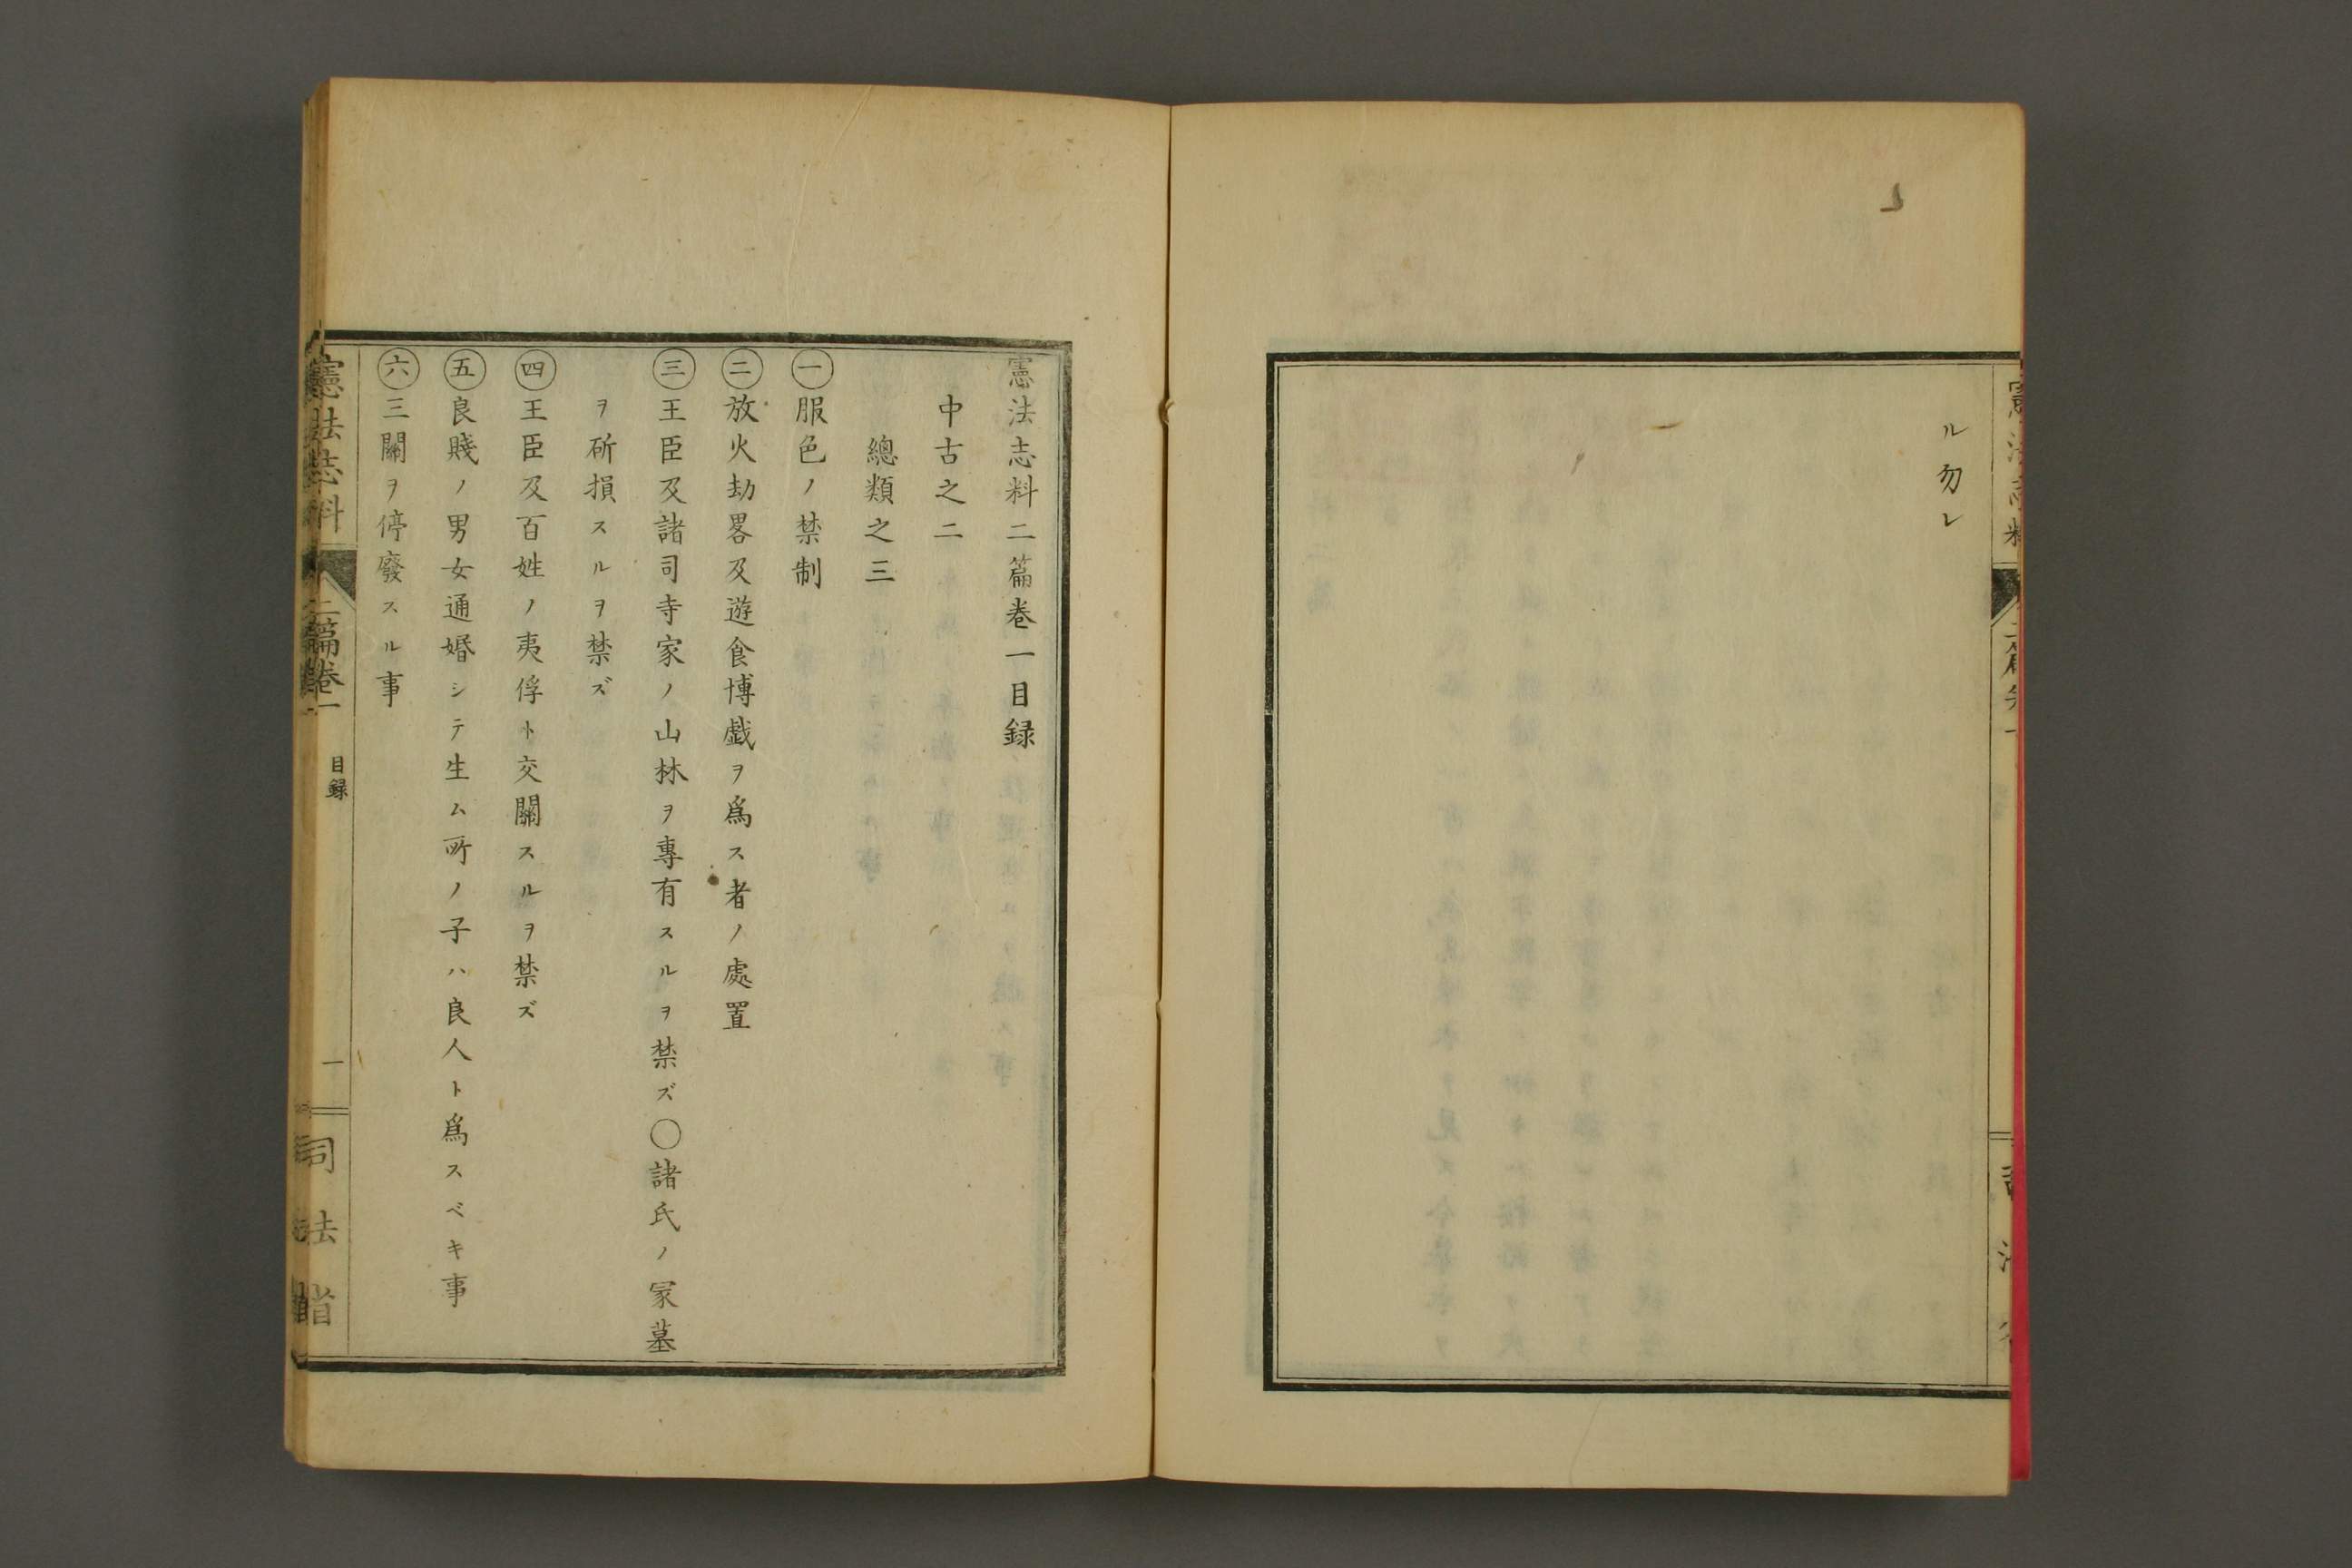 ル勿レ
憲法志料二篇卷一目録
中古之二
總類之三
㊀服色ノ禁制
㊁放火劫畧及遊食博戯ヲ爲ス者ノ處置
㊂王臣及諸司寺家ノ山林ヲ專有スルヲ禁ズ〇諸氏ノ冢墓
ヲ斫損スルヲ禁ズ
㊃王臣及百姓ノ夷俘ト交關スルヲ禁ズ
㊄良賤ノ男女通婚シテ生ム所ノ子ハ良人ト爲スベキ事
㊅三關ヲ停廢スル事
憲法志料 二篇卷一 目録 一 司法省